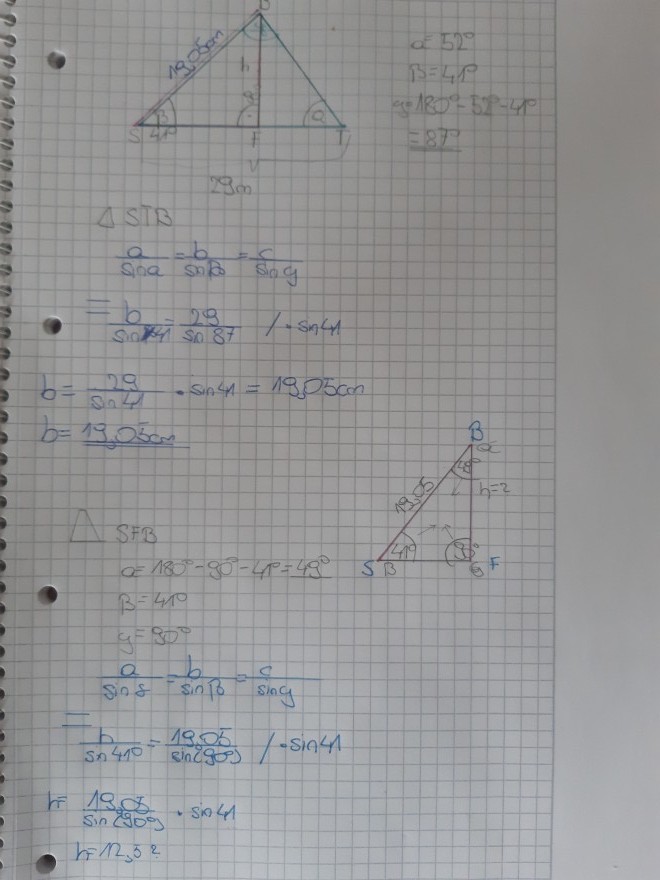 19,05cm
h
B
41°
a
S F T
29m
a = 52°
B = 41°
y = 180° - 52° - 41°
= 87°
△ STB
a/sina = b/sinβ = c/siny
= b/sin41 = 29/sin 87 / · sin41
b = 29/sin41 · sin41 = 19,05cm
b = 19,05cm
B
a
19,05
h=?
41°
S B F
△ SFB
a = 180° - 90° - 41° = 49°
B = 41°
y = 90°
b/sinβ = c/siny
= b/sin41° = 19,05/sin(90°) / · sin41
h = 19,05 · sin41